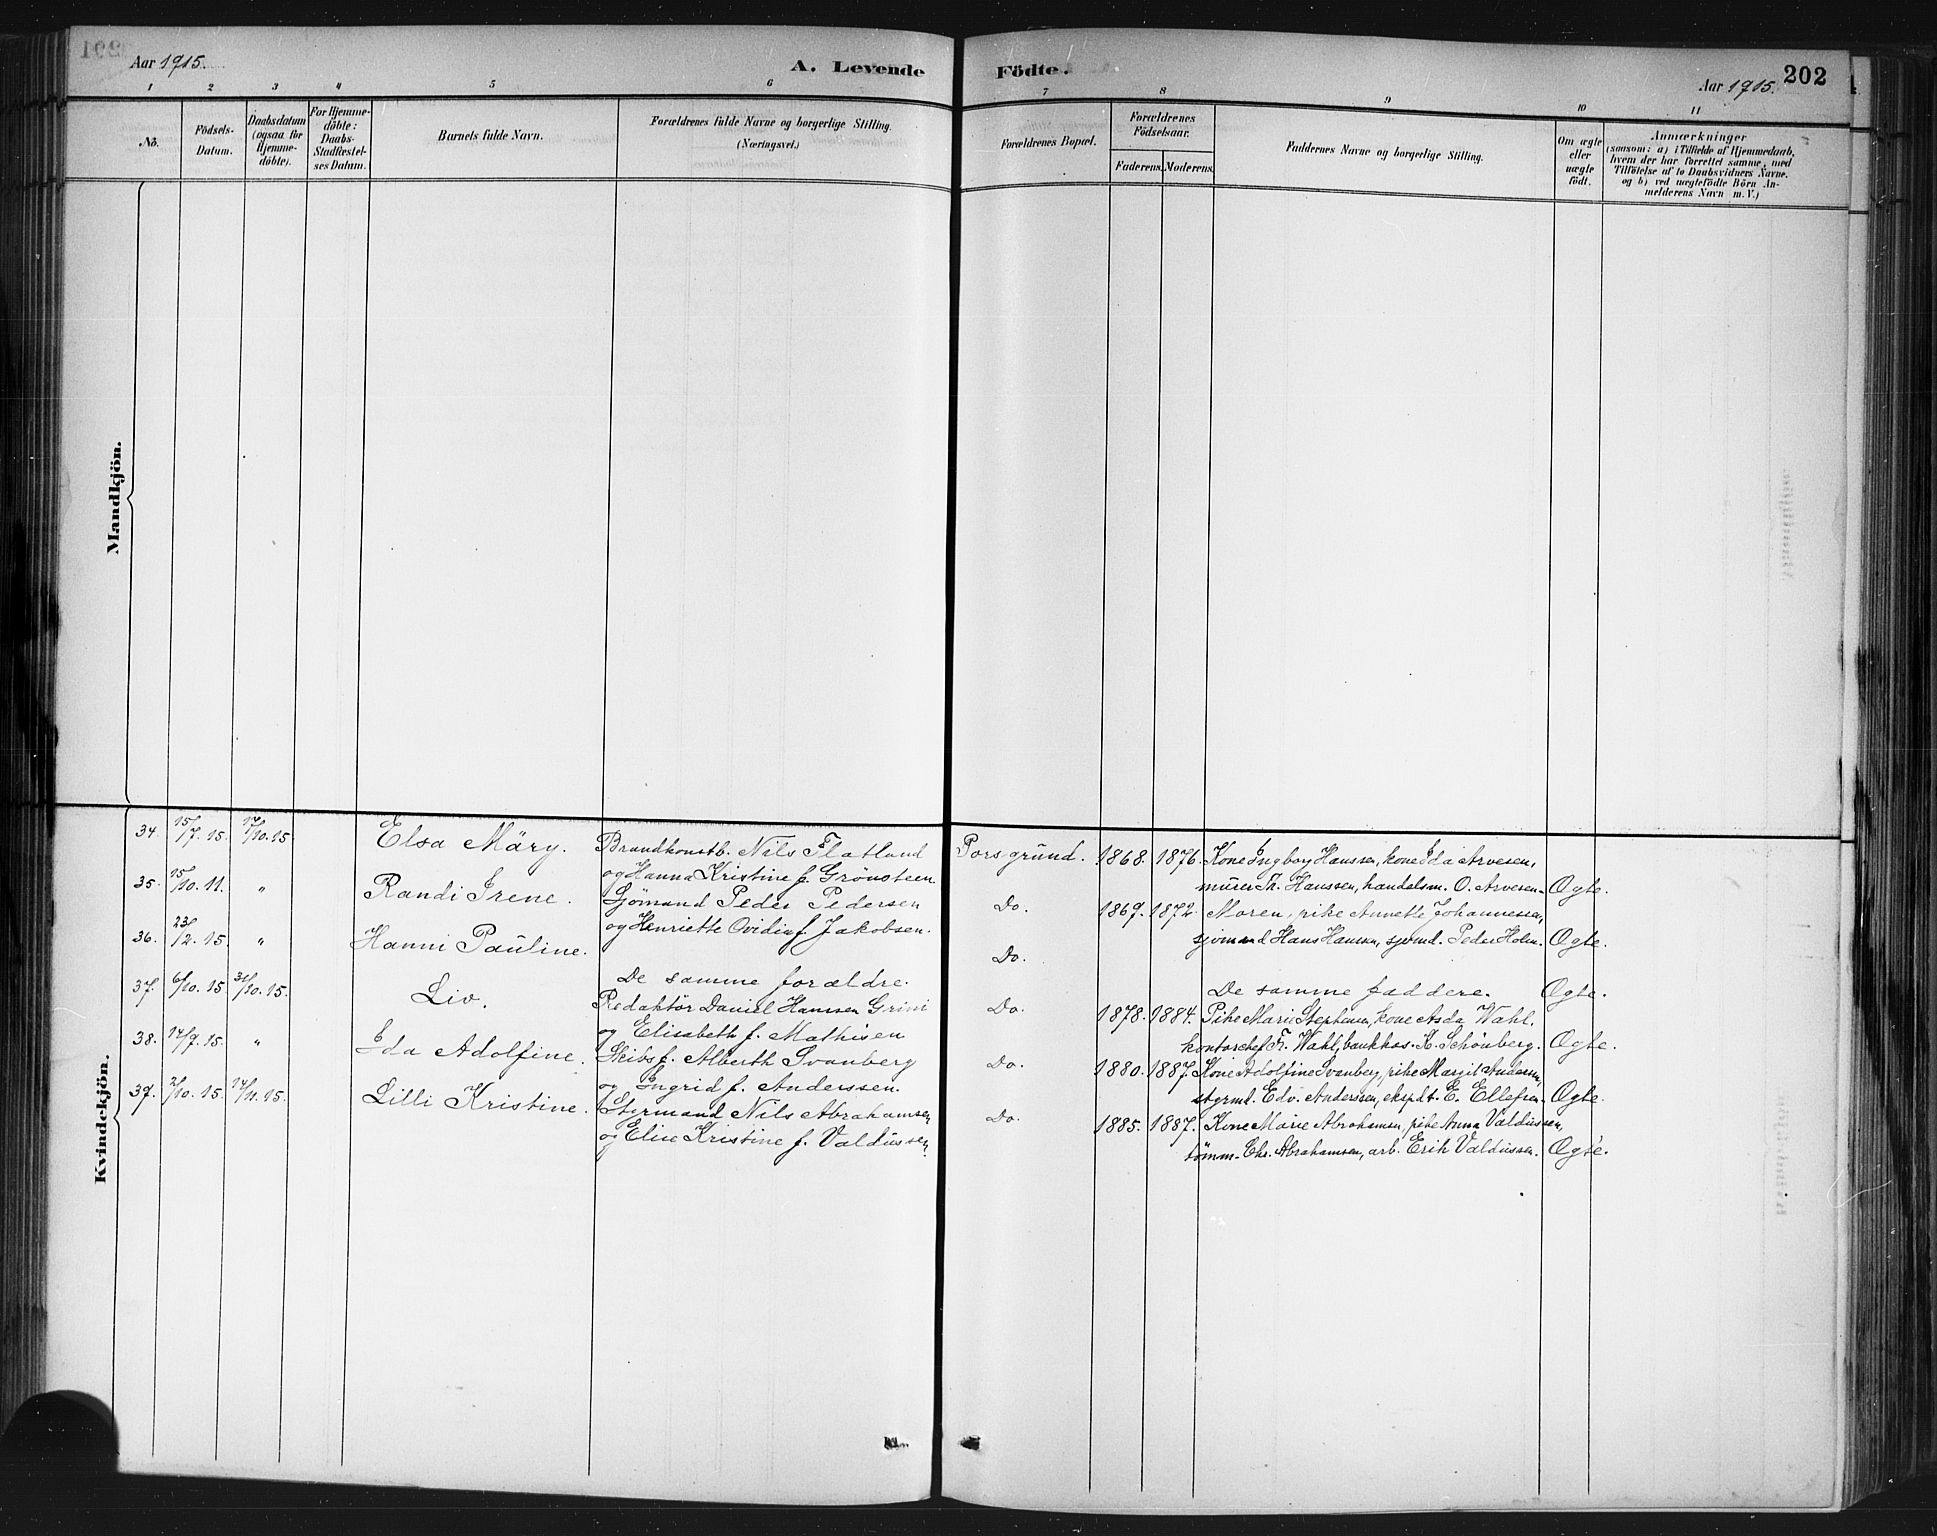 Aar 1915.
A. Levende Födte.
Aar 1915. 202
1 2 3 4 5 6 7 8 9 10 11
No.
Födsels-
Datum.
Daabsdatum
(ogsaa for
Hjemme-
döbte).
For Hjemme-
döbte:
Daabs-
Stadfæstel-
ses Datum.
Barnets fulde Navn.
Forældrenes fulde Navne og borgerlige Stilling.
(Næringsvei.)
Forældrenes Bopæl.
Forældrenes
Födselsaar.
Faderens. Moderens.
Faddernes Navne og borgerlige Stilling.
Om ægte
eller
uægte
födt.
Anmærkninger
(saasom: a) i Tilfælde af Hjemmedaab,
hvem der har forrettet samme, med
Tilföielse af to Daabsvidners Navne.
og b) ved uægtefödte Börn An-
melderens Navn m. V.)
Mandkjön.
Kvindekjön.
34. 15/7. 15. 17/10. 15 Elsa Märy. Brandkonstb. Nils Flatland
og Hanna Kristine f. Grönsteen
Porsgrund. 1868. 1876. Kone Ingborg Hanssen, kone Ida Arvesen,
murer Th. Hanssen, handelsm. O. Arvesen. Ægte.
35. 15/10. 11. " Randi Irene. Sjömand Peder Pedersen
og Henriette Ovidia f. Jakobsen.
Do. 1869. 1872. Moren, pike Annette Johannessen,
sjömand Hans Hansen, sjömd. Peder Holm. Ægte.
36. 23/2. 15. " Hanni Pauline.
De samme forældre.
Do. De samme faddere. Ægte.
37. 6/10. 15. 31/10. 15. Liv. Redaktör Daniel Hanssen Grini
og Elisabeth f. Mathisen
Do. 1878. 1884. Pike Marie Stephansen, kone Asda Wahl.
kontorchef Fr. Wahl, bankkas. K. Schönberg. Ægte.
38. 14/9. 15. " Ida Adolfine. Skibsf. Alberth Svanberg
og Ingrid f. Anderssen.
Do. 1880. 1887. Kone Adolfine Svanberg, pike Margit Andersen,
styrmd. Edv. Anderssen, ekspdt. E. Ellefsen. Ægte.
39. 2/10. 15. 14/11. 15. Lilli Kristine. Styrmand Nils Abrahamsen
og Elise Kristine f. Valdussen.
Do. 1885. 1887. Kone Marie Abrahamsen, pike Anna Valdussen,
tömm. Chr. Abrahamsen, arb. Erik Valdussen. Ægte.